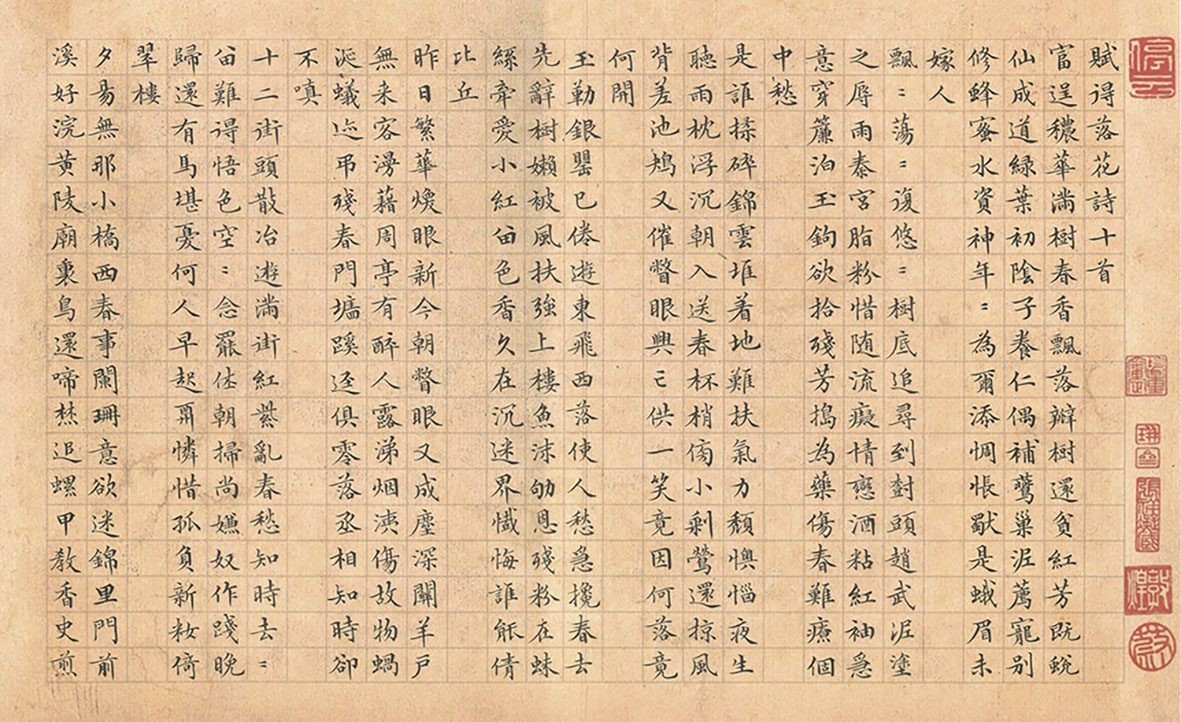 賦得落花詩十首
富逞穠華滿樹春香飄落瓣樹還貧紅芳既蛻
仙成道綠葉初陰子養仁偶補鶯巢泥薦寵別
修蜂蜜水資神年〻為爾添惆悵獻是蛾眉未
嫁人
飄〻蕩〻復悠〻樹底追尋到封頭趙武泥塗
之辱雨秦宮脂粉惜随流癡情戀酒粘紅袖急
意穿簾泊玉鉤欲拾殘芳搗為藥傷春難療個
中愁
是誰揉碎錦雲堆着地難扶氣力頹懊惱夜生
聽雨枕浮沉朝入送春杯梢傍小剩鶯還掠風
背差池鳩又催瞥眼興亡供一笑竟因何落竟
何開
玉勒銀罌已倦遊東飛西落使人愁急攙春去
先辭樹嬾被風扶強上樓魚沫劬恩殘粉在蛛
絲牽愛小紅留色香久在沉迷界懺悔誰能倩
比丘
昨日繁華煥眼新今朝瞥眼又成塵深關羊戶
無来客漫藉周亭有醉人露涕烟洟傷故物蝸
涎蟻迹弔殘春門墻蹊逕俱零落丞相知時卻
不嗔
十二街頭散冶遊滿街紅紫亂春愁知時去〻
留難得悟色空〻念罷休朝掃尚嫌奴作踐晚
歸還有馬堪憂何人早起憐惜孤負新妝倚
翠樓
夕昜無那小橋西春事闌珊意欲迷錦里門前
溪好浣黃陵廟裏鳥還啼焚追螺甲教香史煎
停雲